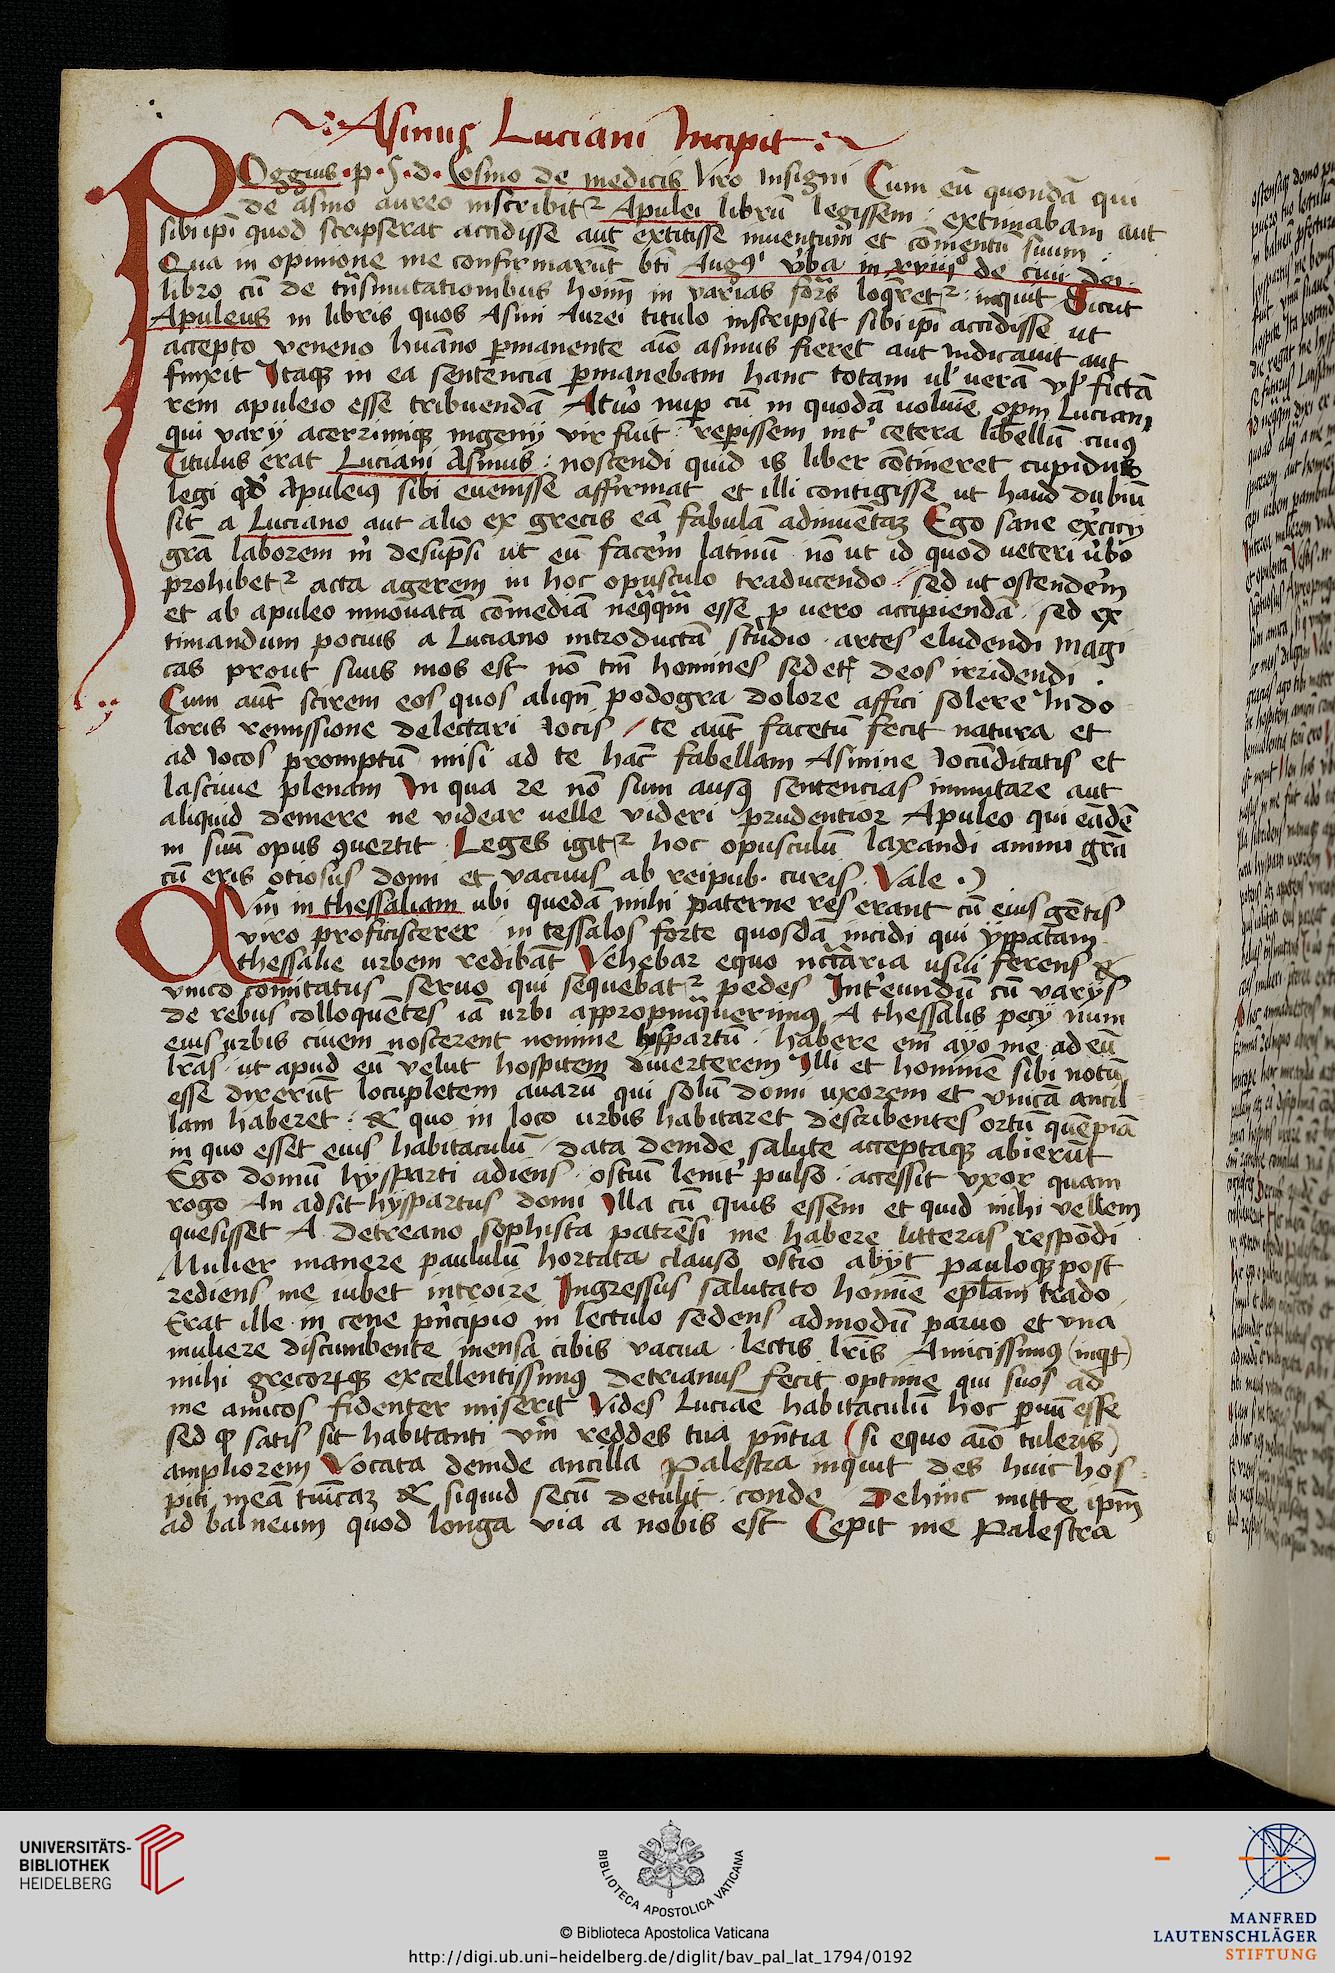 Asinus Luciani Incipit
POggius . p . S . d . Cosmo de medicis Viro insigni Cum eū quondā qui
de asino aureo inscribitr Apulei librū legissem : extimabam aut
sibi ipī quod scripserat accidisse aut extitisse inuentum et cōmentū suum .
Qua in opinione me confirmarūt bti Augꝰ vba in xviij de ciui dei
libro cū de tnsmutationibus hoīm in varias fors loqretr : inquit Sicut
Apuleus in libris quos Asini Aurei titulo inscripsit sibi ipī accidisse ut
accepto veneno huāno pmanente aīo asinus fieret aut indicauit aut
finxit Itaqꝫ in ea sentencia pmanebam hanc totam ul uerā vl fictā
rem apuleio esse tribuendā At uo nup cū in quodā uoluīe opm Luciani
qui varij acerzimiqꝫ ingenij vir fuit : repissem int cetera libellū cuiꝰ
Titulus erat Luciani Asinus : noscendi quid is liber cōntineret cupidus
legi qd Apuleiꝰ sibi euenisse affirmat et illi contigisse ut haud dubiū
sit a Luciano aut alio ex grecis eā fabulā adinuētaꝫ Ego sane
grā laborem m desupsi ut eū facem latinū nō ut id quod ueteri ubo
prohibetr acta agerem in hoc opusculo traducendo / sed ut ostendem
et ab apuleo innouatā cōmediā neqqm esse p uero accipiendā . sed ex
timandum pocius a Luciano introductā studio . artes eludendi magi
cas prout suus mos est nō tm homines sed et deos irridendi .
Cum aut scirem eos quos aliqn podogra dolore affici solere In do
loris remissione delectari Jocis / te aut facetū fecit natura et
ad Jocos promptū misi ad te hāc fabellam Asinine Jocūditatis et
lasciuie plenam In qua re nō sum ausꝰ sentencias inmutare aut
aliquid demere ne videar uelle videri prudentior Apuleo qui eādē
in suū opus ꝯuertit . Leges igitr hoc opusculū laxandi animi grā
cū eris otiosus domi et vacuus ab reipub . curis . Vale .
in thessaliam ubi quedā mihi paterne res erant cū eius gētis
viro proficiscerer in tessalos forte quosdā incidi qui ypatam
thessalie urbem redibāt Vehebar equo usui ferens &
vnico comitatus seruo qui sequebatr pedes Inteundū cū varijs
de rebus colloquētes iā urbi appropinqueriimꝰ A thessalis pecij num
eius urbis ciuem noscerent nomine hyspartū . habere em ayo me ad eū
lras . ut apud eū velut hospitem diuerterem Illi et hominē sibi notū
esse dixerūt locupletem auarū qui solū domi uxorem et vnicā ancil
lam haberet : & quo in loco urbis habitaret describentes ortū quēpiā
in quo esset eius habitaculū / data deinde salute acceptaqꝫ abierūt
Ego domū hysparti adiens . ostiū lenit pulso . accessit vxor quam
rogo An adsit hyspartus domi Illa cū quis essem et quid mihi vellem
quesisset A Detreano sophista patresi me habere litteras respōdi
Mulier manere paululū hortata clauso ostio abijt pauloqꝫ post
rediens me iubet introire Ingressus salutato homīe eplam trado .
Erat ille in cene pncipio in lectulo sedens admodū paruo et vna
muliere discumbente mensa cibis vacua . lectis lris Amicissimꝰ (inqt)
mihi grecorqꝫ excellentissimꝰ detrianus fecit optime qui suos ad
me amicos fidenter miserit Vides Luciae habitaculū hoc puū esse
sed qp satis sit habitanti vm reddes tua pntia (si equo aīo tuleris)
ampliorem Vocata deinde ancilla Palestra inquit des huic hos
piti meā tunicaꝫ & siquid secū detulit . conde . Dehinc mitte ipm
ad balneum quod longa via a nobis est Cepit me Palestra
UNIVERSITÄTS-
BIBLIOTHEK
HEIDELBERG
BIBLIOTECA APOSTOLICA VATICANA
© Biblioteca Apostolica Vaticana
http://digi.ub.uni-heidelberg.de/diglit/bav_pal_lat_1794/0192
MANFRED
LAUTENSCHLÄGER
STIFTUNG